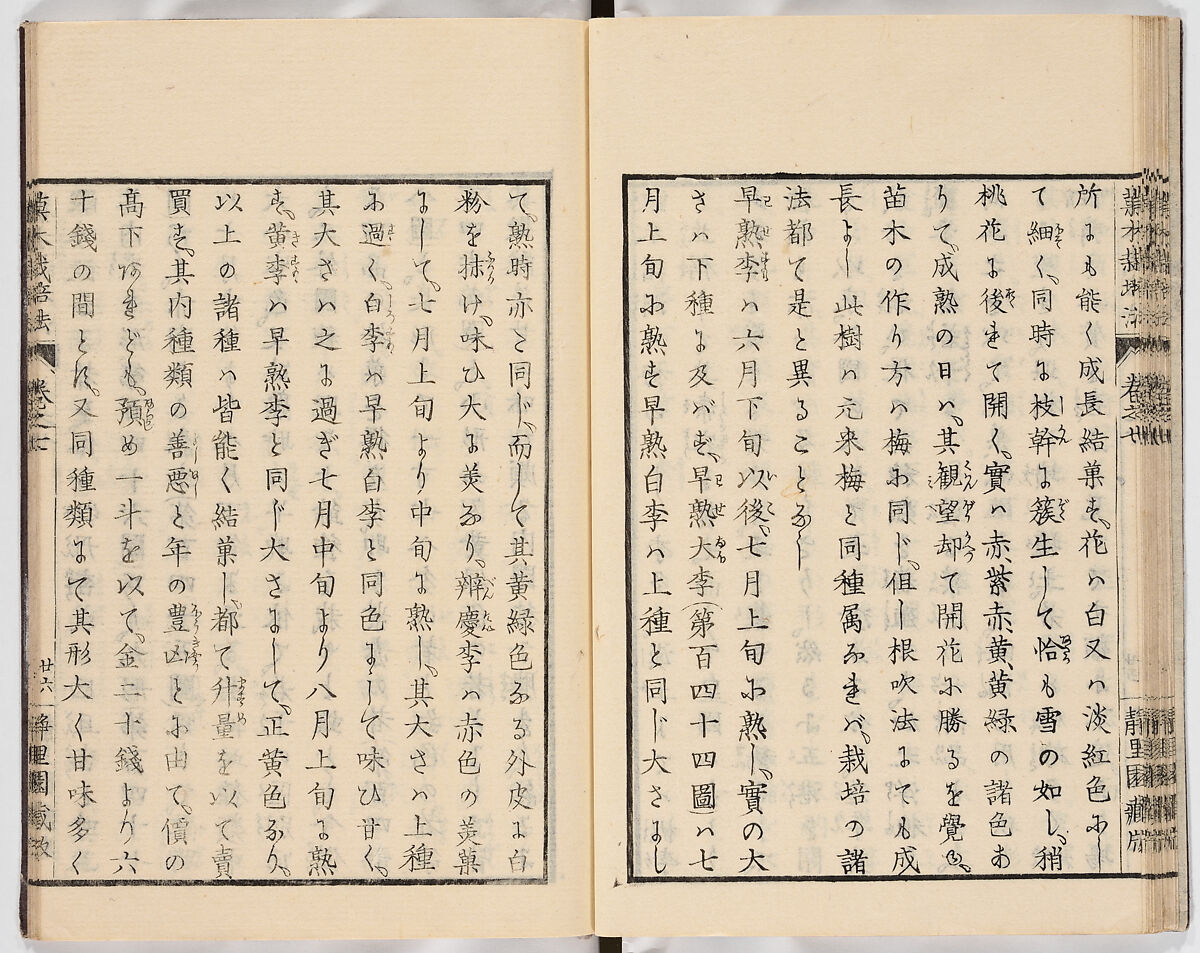 所にも能く成長結菓す、花ハ白又ハ淡紅色にし
て細く、同時に枝幹に簇生して恰も雪の如し、稍
桃花に後れて開く、實ハ赤、紫赤、黄、黄緑の諸色あ
りて、成熟の日ハ、其観望却て開花に勝るを覺ゆ、
苗木の作り方ハ梅に同じ、但し根吹法にても成
長よし此樹ハ元來梅と同種属なれバ、栽培の諸
法都て是と異ることなし
早熟李ハ六月下旬以後、七月上旬に熟し、實の大
さハ下種に及バず、早熟大李(第百四十四圖)ハ七
月上旬に熟す早熟白李ハ上種と同じ大さにし
て、熟時亦と同じ、而して其黄緑色なる外皮に白
粉を抹け、味ひ大に美なり、辨慶李ハ赤色の美菓
にして、七月上旬より中旬に熟し、其大さハ上種
に過く、白李ハ早熟白李と同色にして味ひ甘く、
其大さハ之に過ぎ七月中旬より八月上旬に熟
す、黄李ハ早熟李と同じ大さにして、正黄色なり、
以上の諸種ハ皆能く結菓し、都て升量を以て賣
買す、其内種類の善悪と年の豊凶とに由て、價の
高下あれども、預め一斗を以て、金二十錢より六
十錢の間とす、又同種類にて其形大く甘味多く
菓木栽培法
巻之七
廿六
靜里園藏版